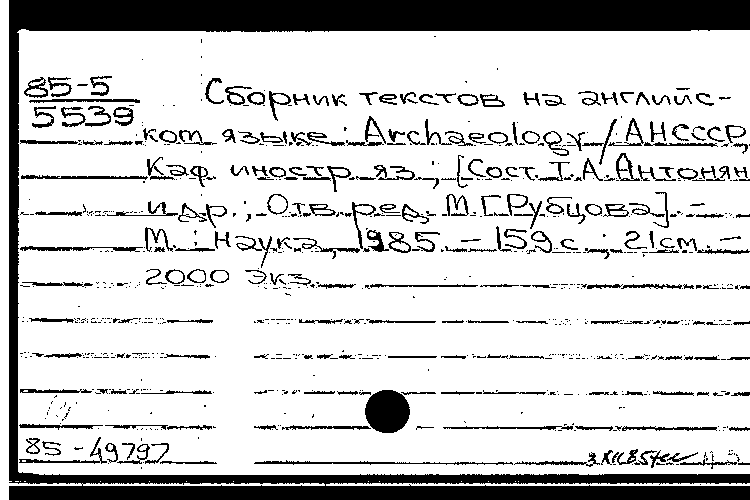 85-5
5539
Сборник текстов на английс-
ком языке : Archaeology / АНСССР,
Каф. иностр. яз. ; [Сост. Т.А. Антонян
и др. ; Отв. ред. М.Г.Рубцова]. -
М. : Наука, 1985. - 159 с. ; 21см. -
2000 экз.
85-49797